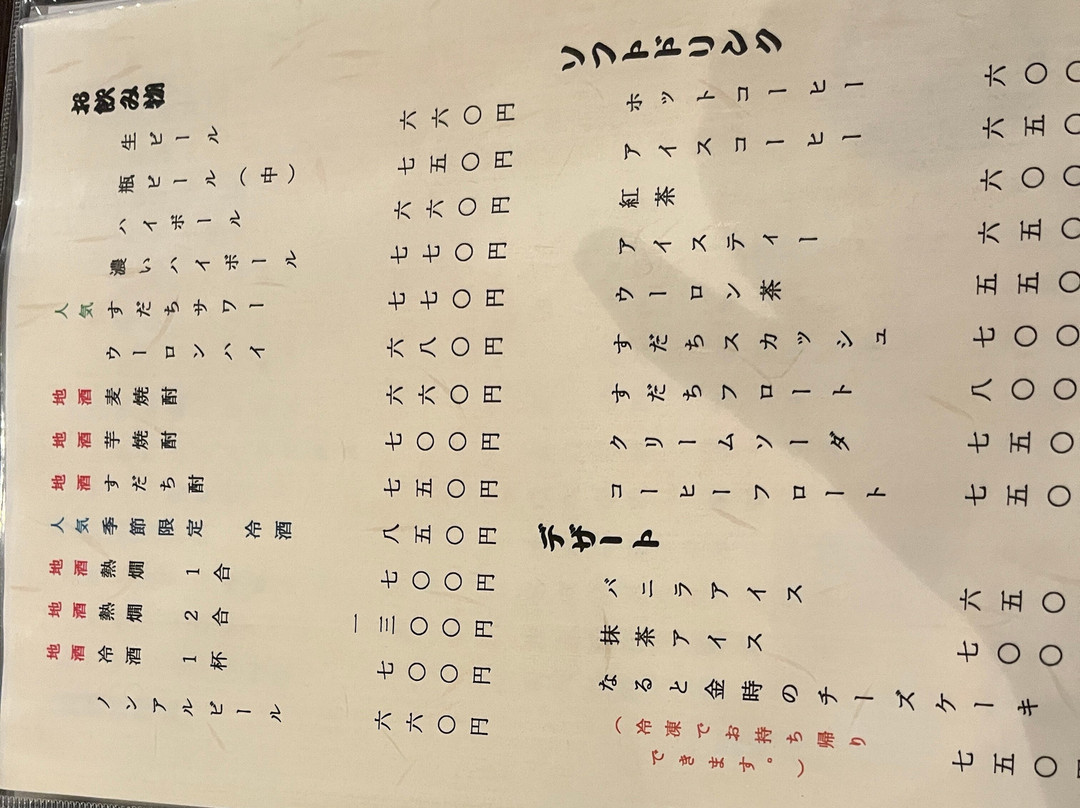 お飲み物
生ビール 六六〇円
瓶ビール（中） 七五〇円
ハイボール 六六〇円
濃いハイボール 七七〇円
人気 すだちサワー 七七〇円
ウーロンハイ 六八〇円
地酒 麦焼酎 六六〇円
地酒 芋焼酎 七〇〇円
地酒 すだち酎 七五〇円
人気 季節限定 冷酒 八五〇円
地酒 熱燗 1合 七〇〇円
地酒 熱燗 2合 一三〇〇円
地酒 冷酒 1杯 七〇〇円
ノンアルビール 六六〇円
ソフトドリンク
ホットコーヒー 六〇〇
アイスコーヒー 六五〇
紅茶 六〇〇
アイスティー 六五〇
ウーロン茶 五五〇
すだちスカッシュ 七〇〇
すだちフロート 八〇〇
クリームソーダ 七五〇
コーヒーフロート 七五〇
デザート
バニラアイス 六五〇
抹茶アイス 七〇〇
なると金時のチーズケーキ 七五〇
（冷凍でお持ち帰り
できます。）